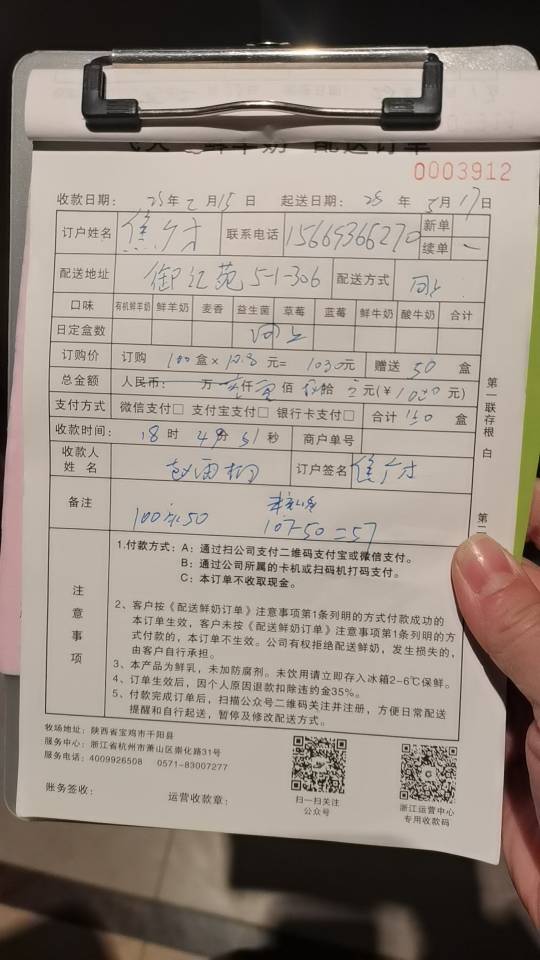 鲜羊奶 配送订单
0003912
收款日期: 25年2月15日 起送日期: 25年3月17日
订户姓名 焦 联系电话 15669366270 新单
续单
配送地址 御江苑5-1-306 配送方式 同上
口味 有机鲜羊奶 鲜羊奶 麦香 益生菌 草莓 蓝莓 鲜牛奶 酸牛奶 合计
日定盒数 同上
订购价 订购 100盒×10.8元=1030元 赠送 50 盒
总金额 人民币: 万 仟 佰 拾 元(¥ 元)
支付方式 微信支付□ 支付宝支付□ 银行卡支付□ 合计 150 盒
收款时间: 18时49分51秒 商户单号
收款人姓名 订户签名 焦
备注 100送50 107-50=57
注意事项
1.付款方式: A: 通过扫公司支付二维码支付宝或微信支付。
B: 通过公司所属的卡机或扫码机打码支付。
C: 本订单不收取现金。
2、客户按《配送鲜奶订单》注意事项第1条列明的方式付款成功的
本订单生效, 客户未按《配送鲜奶订单》注意事项第1条列明的方
式付款的, 本订单不生效。公司有权拒绝配送鲜奶, 发生损失的,
由客户自行承担。
3、本产品为鲜乳, 未加防腐剂。未饮用请立即存入冰箱2-6℃保鲜。
4、订单生效后, 因个人原因退款扣除违约金35%。
5、付款完成订单后, 扫描公众号二维码关注并注册, 方便日常配送
提醒和自行起送, 暂停及修改配送方式。
第一联存根 白
第二
牧场地址: 陕西省宝鸡市千阳县
服务中心: 浙江省杭州市萧山区崇化路31号
服务电话: 4009926508 0571-83007277
扫一扫关注
公众号
浙江运营中心
专用收款码
账务签收: 运营收款章: